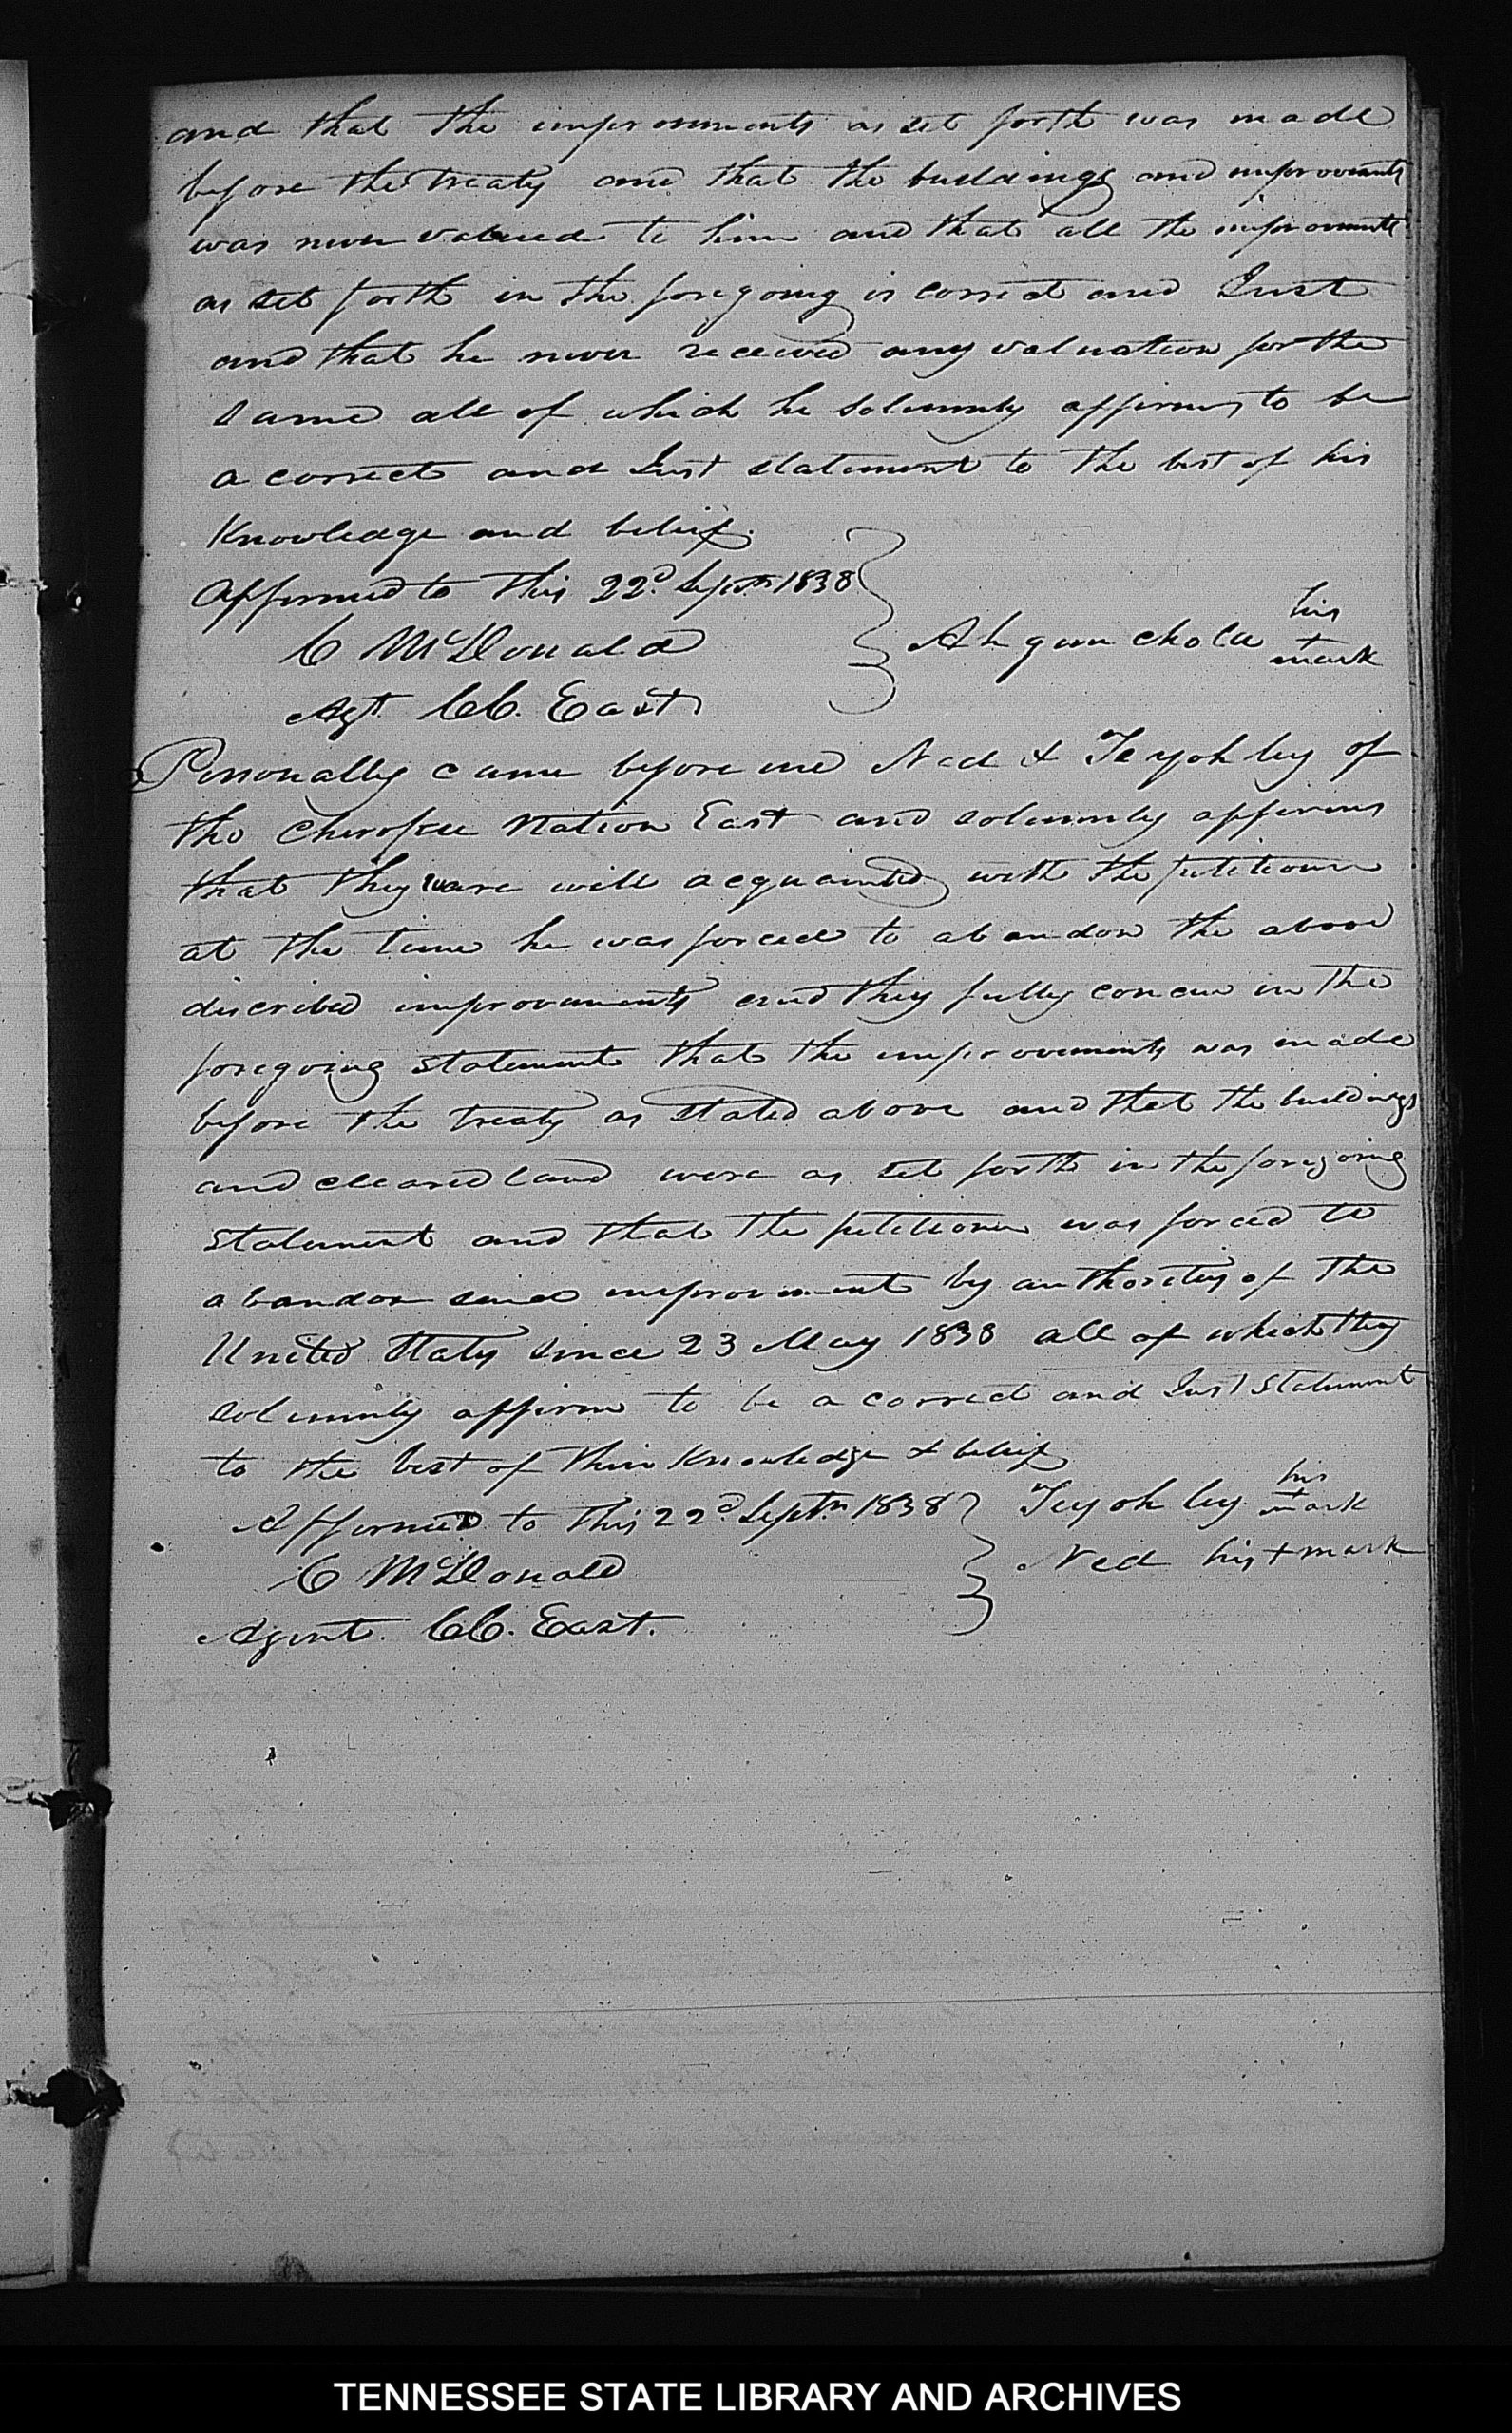 and that the improvements as set forth was made
before the treaty and that the buildings and improvements
was never valued to him and that all the improvements
as set forth in the foregoing is correct and Just
and that he never received any valuation for the
same all of which he Solemnly affirms to be
a correct and Just statement to the best of his
Knowledge and belief.
Affirmed to this 22d. Septr. 1838
his
C McDonald Ah gun chola +
mark
Agt. CC. East
Personally came before me Ned & Te yoh ley of
the Cherokee Nation East and solemnly affirms
that they ware will acquainted with the petitioner
at the time he was forced to abandon the above
discribed improvements and they fully concur in the
foregoing statement that the improvements was made
before the treaty as stated above and that the buildings
and cleared land were as set forth in the foregoing
statement and that the petitioner was forced to
abandon said improvement by authority of the
United States Since 23 May 1838 all of which they
solemnly affirm to be a correct and Just statement
to the best of their Knowledge & belief
his
Affirmed to this 22d. Septr. 1838 Teyoh ley +
mark
C McDonald Ned his + mark
Agent. CC. East.
TENNESSEE STATE LIBRARY AND ARCHIVES